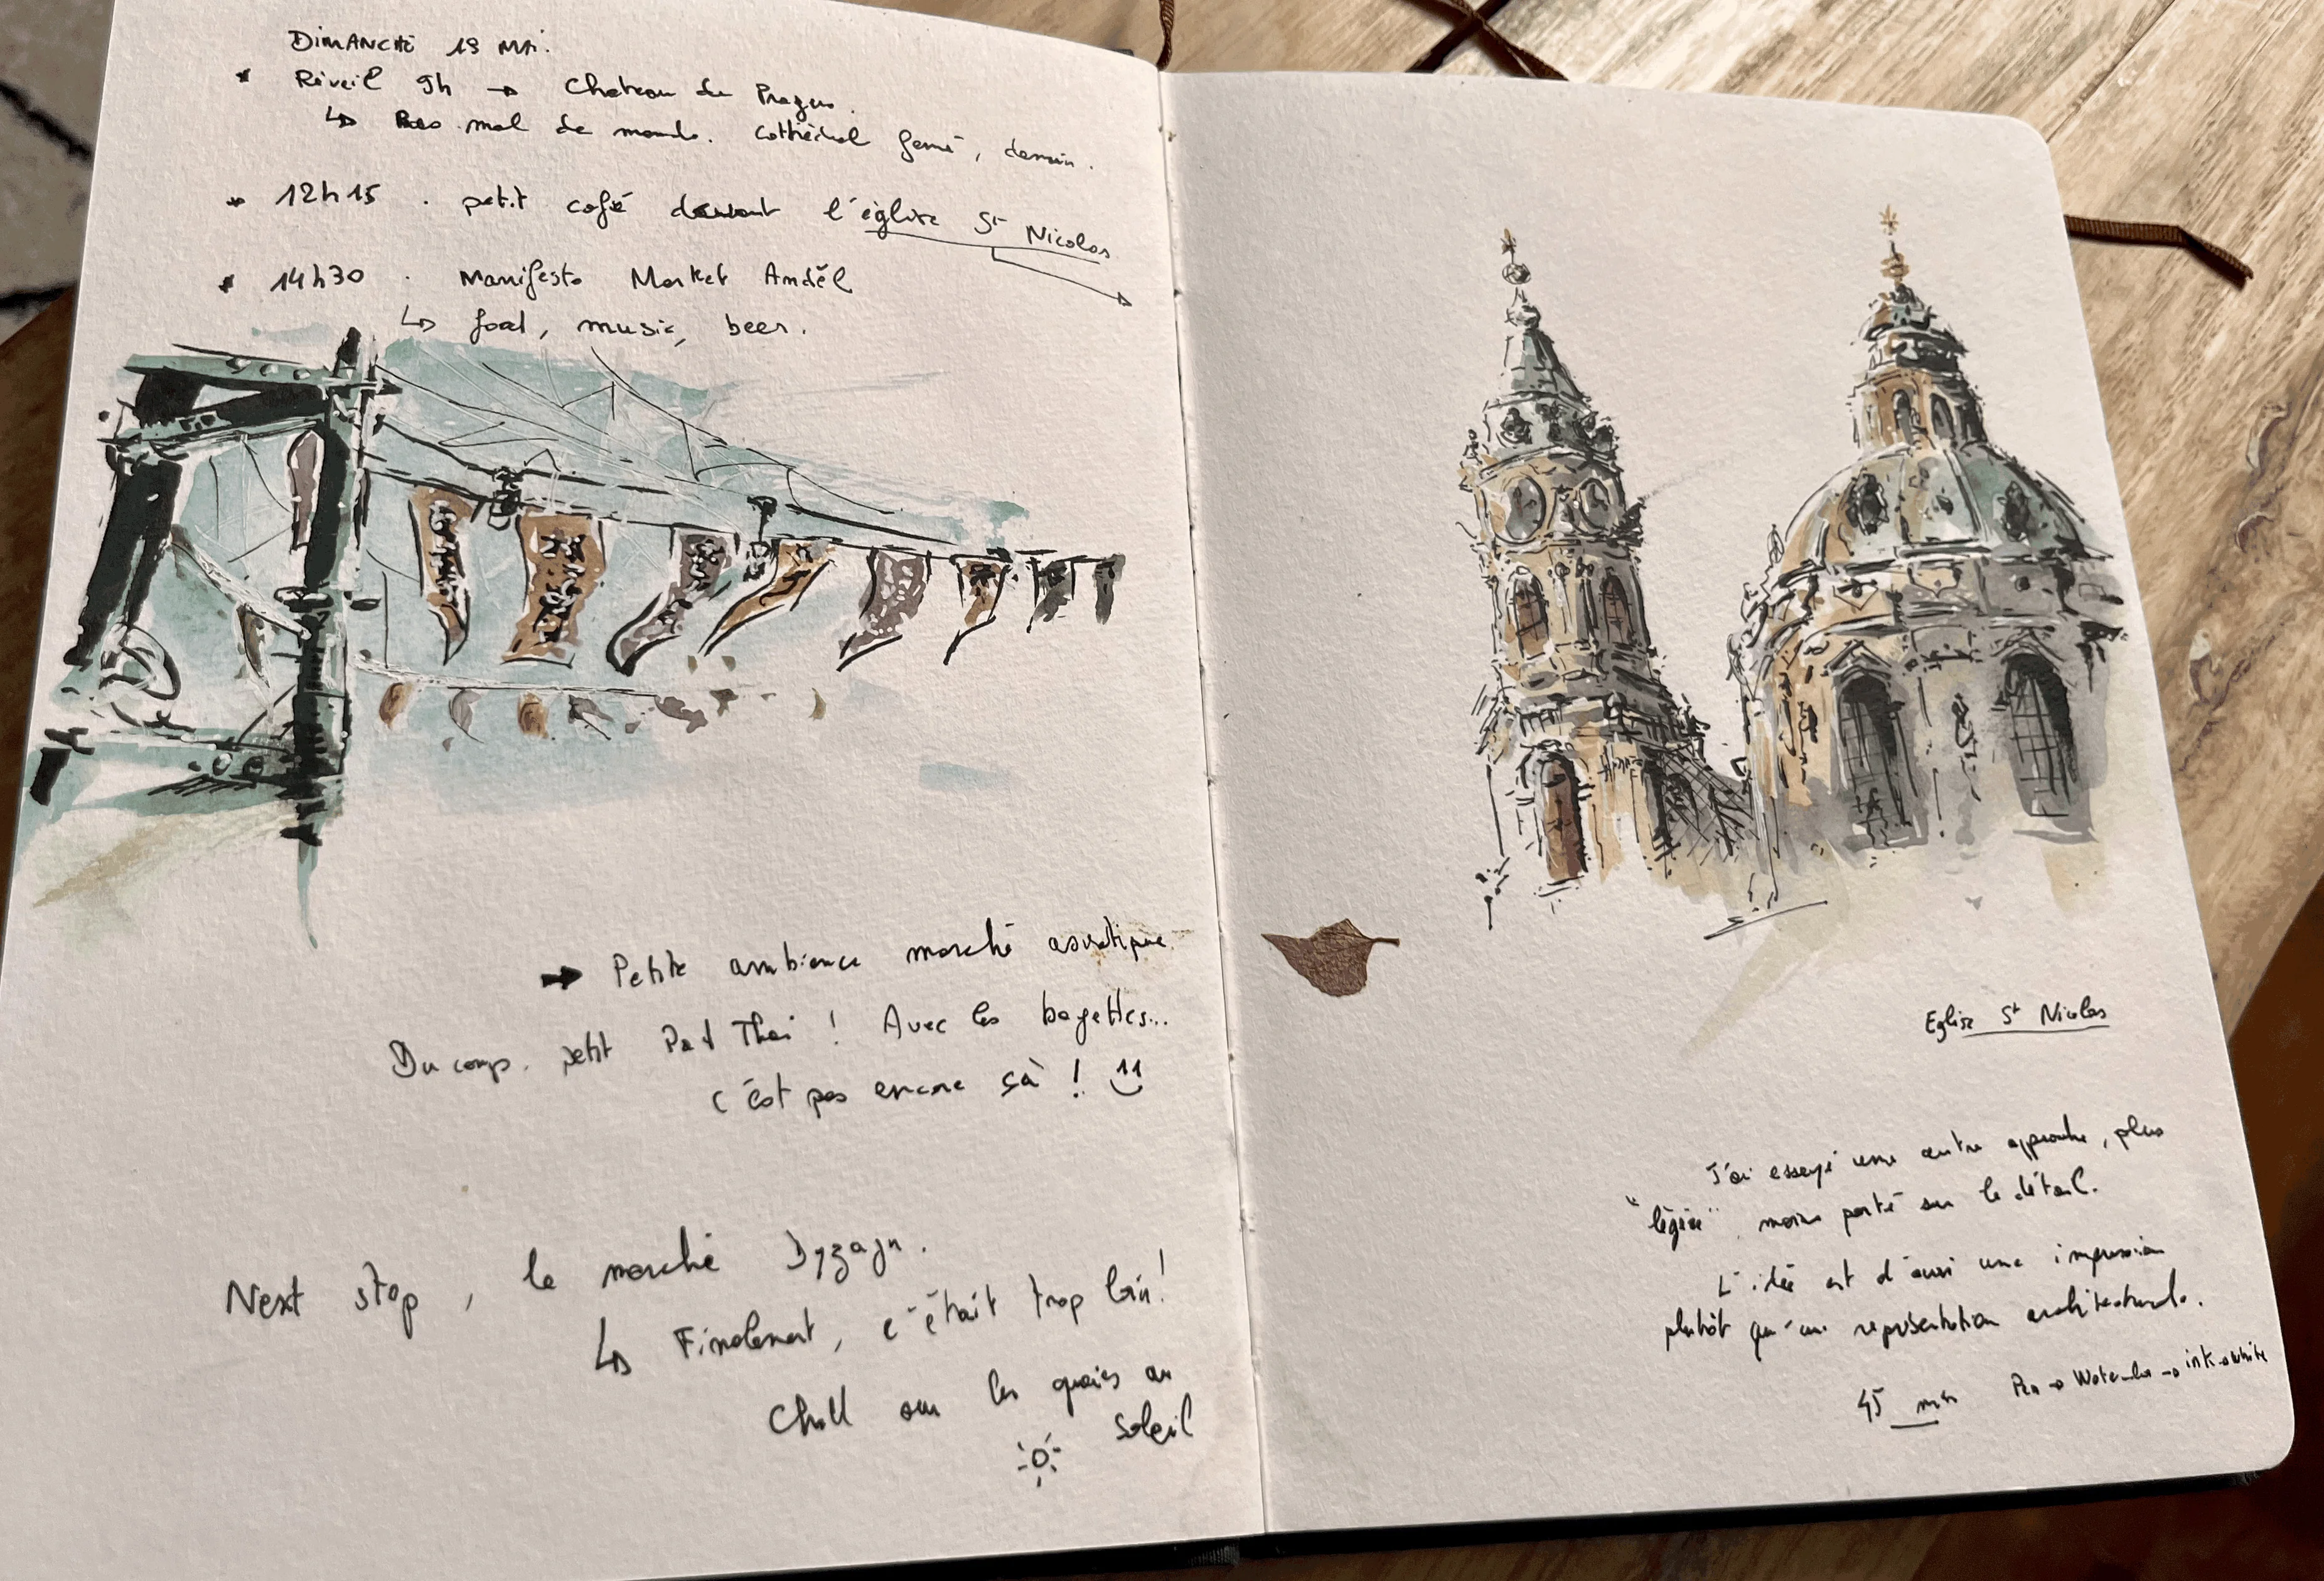 DIMANCHE 19 MAI.
* Réveil 9h → Chateau de Prague.
↳ Pas mal de monde. Cathédral fermé, demain.
* 12h15 . petit café devant l'église St Nicolas
* 14h30 . Manifesto Market Anděl
↳ food, music, beer.
→ Petite ambiance marché asiatique.
Du coup, petit Pad Thai ! Avec les bagettes...
c'est pas encore çà !
Next stop, le marché
↳ Finalement, c'était trop loin!
Chill sur les quaies au
soleil
Eglise St Nicolas
J'ai essayé une autre approche, plus
"légère" moins porté sur le détail.
L'idée est d'avoir une impression
plutôt qu'une représentation architecturale.
45 min Pen → Watercolor → ink → white